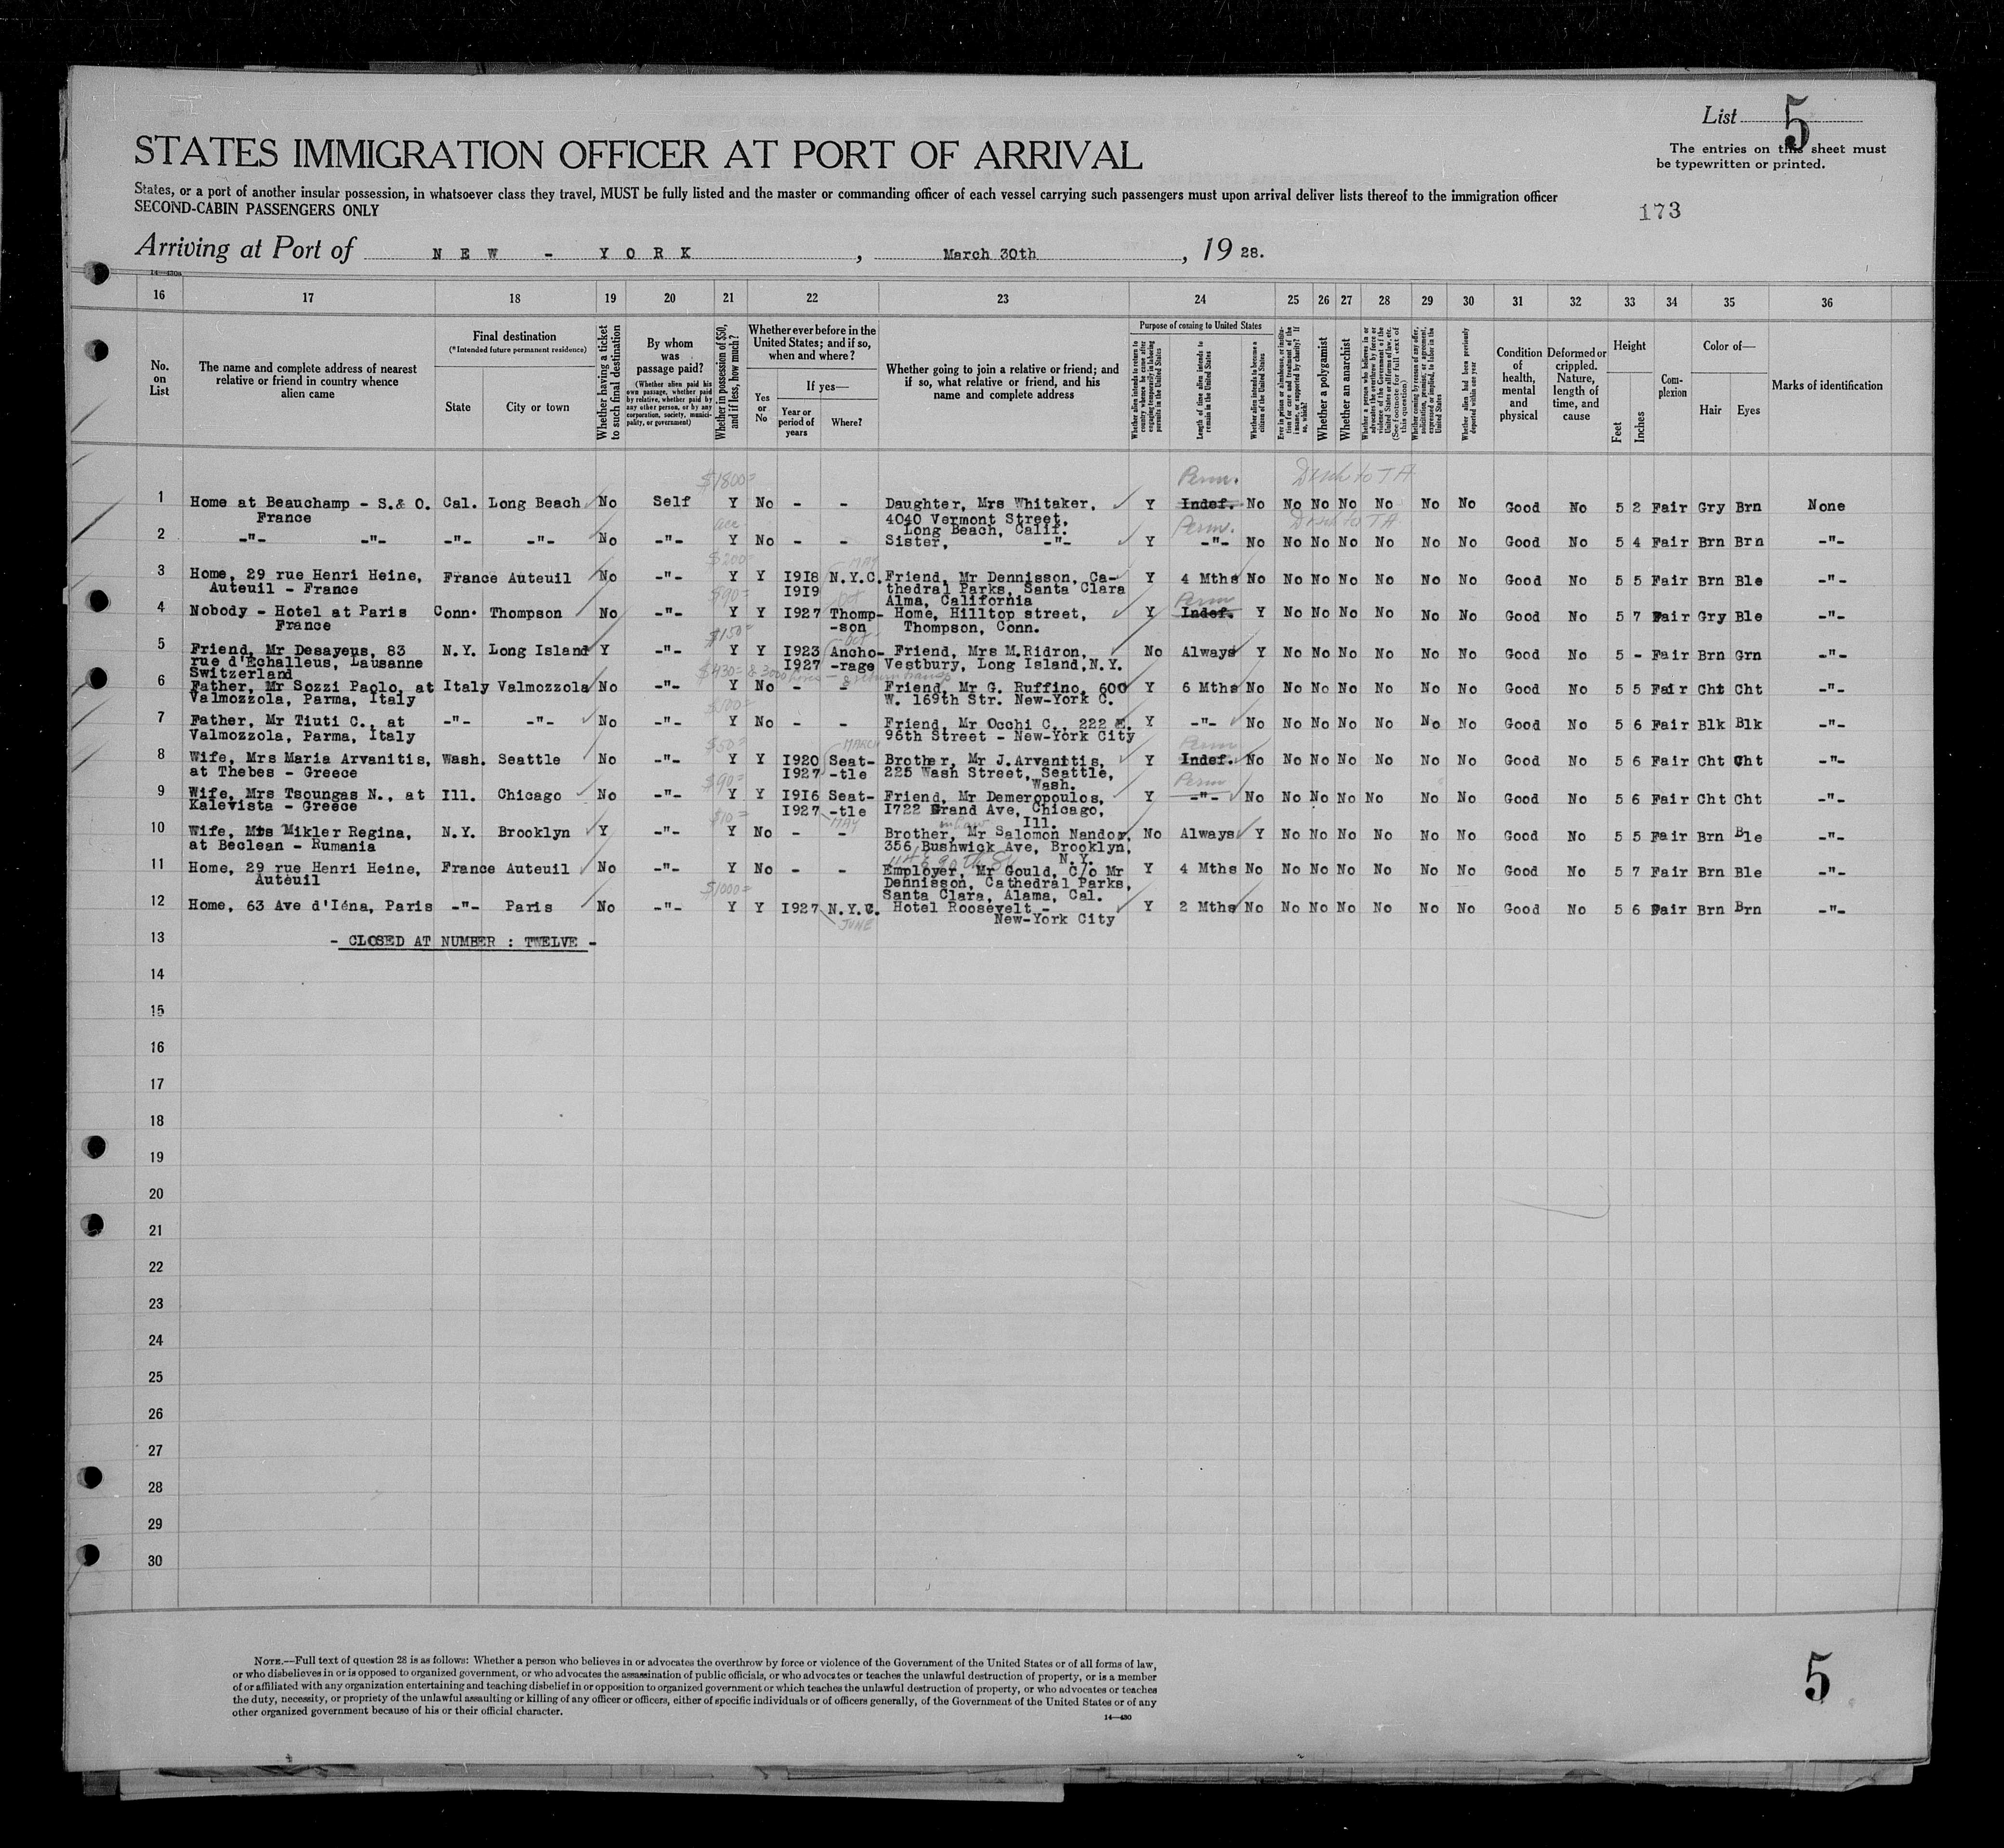 List 5
The entries on this sheet must
be typewritten or printed.
STATES IMMIGRATION OFFICER AT PORT OF ARRIVAL
States, or a port of another insular possession, in whatsoever class they travel, MUST be fully listed and the master or commanding officer of each vessel carrying such passengers must upon arrival deliver lists thereof to the immigration officer
SECOND-CABIN PASSENGERS ONLY
173
Arriving at Port of NEW - YORK , March 30th , 19 28.
14—430a
16 17 18 19 20 21 22 23 24 25 26 27 28 29 30 31 32 33 34 35 36
No. on List
The name and complete address of nearest relative or friend in country whence alien came
Final destination
(*Intended future permanent residence)
State
City or town
Whether having a ticket to such final destination
By whom was passage paid?
(Whether alien paid his own passage, whether paid by relative, whether paid by any other person, or by any corporation, society, municipality, or government)
Whether in possession of $50, and if less, how much?
Whether ever before in the United States; and if so, when and where?
Yes or No
If yes—
Year or period of years
Where?
Whether going to join a relative or friend; and if so, what relative or friend, and his name and complete address
Purpose of coming to United States
Whether alien intends to return to country whence he came after engaging temporarily in laboring pursuits in the United States
Length of time alien intends to remain in the United States
Whether alien intends to become a citizen of the United States
Ever in prison or almshouse, or institution for care and treatment of the insane, or supported by charity? If so, which?
Whether a polygamist
Whether an anarchist
Whether a person who believes in or advocates the overthrow by force or violence of the Government of the United States or all forms of law, etc. (See footnote for full text of this question)
Whether coming by reason of any offer, solicitation, promise, or agreement, expressed or implied, to labor in the United States
Whether alien had been previously deported within one year
Condition of health, mental and physical
Deformed or crippled. Nature, length of time, and cause
Height
Feet
Inches
Complexion
Color of—
Hair
Eyes
Marks of identification
$1800= Perm.
1 Home at Beauchamp - S.& O. Cal. Long Beach No Self Y No - - Daughter, Mrs Whitaker, Y Indef. No No No No No No No Good No 5 2 Fair Gry Brn None
France 4040 Vermont Street,
Long Beach, Calif.
Perm.
2 -"- -"- -"- -"- No -"- Y No - - Sister, -"- Y -"- No No No No No No No Good No 5 4 Fair Brn Brn -"-
$200 MAY
3 Home, 29 rue Henri Heine, France Auteuil No -"- Y Y I9I8 N.Y.C. Friend, Mr Dennisson, Ca- Y 4 Mths No No No No No No No Good No 5 5 Fair Brn Ble -"-
Auteuil - France I9I9 thedral Parks, Santa Clara
Alma, California
$90= Perm
4 Nobody - Hotel at Paris Conn. Thompson No -"- Y Y I927 Thomp- Home, Hilltop street, Y Indef. Y No No No No No No Good No 5 7 Fair Gry Ble -"-
France -son Thompson, Conn.
$150=
5 Friend, Mr Desayeus, 83 N.Y. Long Island Y -"- Y Y I923 Ancho- Friend, Mrs M.Ridron, No Always Y No No No No No No Good No 5 - Fair Brn Grn -"-
rue d'Echalleus, Lausanne I927 -rage Vestbury, Long Island,N.Y.
Switzerland
6 Father, Mr Sozzi Paolo, at Italy Valmozzola No -"- Y No - - Friend, Mr G. Ruffino, 600 Y 6 Mths No No No No No No No Good No 5 5 Fair Cht Cht -"-
Valmozzola, Parma, Italy W. 169th Str. New-York C.
7 Father, Mr Tiuti C., at -"- -"- No -"- Y No - - Friend, Mr Occhi C., 222 E. Y -"- No No No No No No No Good No 5 6 Fair Blk Blk -"-
Valmozzola, Parma, Italy 96th Street - New-York City
$50= MARCH Perm
8 Wife, Mrs Maria Arvanitis, Wash. Seattle No -"- Y Y I920 Seat- Brother, Mr J.Arvanitis, Y Indef. No No No No No No No Good No 5 6 Fair Cht Cht -"-
at Thebes - Greece I927 -tle 225 Wash Street, Seattle,
Wash.
$90= Perm
9 Wife, Mrs Tsoungas N., at Ill. Chicago No -"- Y Y I9I6 Seat- Friend, Mr Demeropoulos, Y -"- No No No No No No No Good No 5 6 Fair Cht Cht -"-
Kalevista - Greece I927 -tle I722 Grand Ave, Chicago,
Ill.
$10= MAY in law
10 Wife, Mrs Mikler Regina, N.Y. Brooklyn Y -"- Y No - - Brother, Mr Salomon Nandor, No Always Y No No No No No No Good No 5 5 Fair Brn Ble -"-
at Beclean - Rumania 356 Bushwick Ave, Brooklyn,
N.Y.
11 Home, 29 rue Henri Heine, France Auteuil No -"- Y No - - Employer, Mr Gould, C/o Mr Y 4 Mths No No No No No No No Good No 5 7 Fair Brn Ble -"-
Auteuil Dennisson, Cathedral Parks,
Santa Clara, Alama, Cal.
$1000=
12 Home, 63 Ave d'Iéna, Paris -"- Paris No -"- Y Y I927 N.Y.C. Hotel Roosevelt - Y 2 Mths No No No No No No No Good No 5 6 Fair Brn Brn -"-
New-York City
JUNE
13 - CLOSED AT NUMBER : TWELVE -
14
15
16
17
18
19
20
21
22
23
24
25
26
27
28
29
30
NOTE.—Full text of question 28 is as follows: Whether a person who believes in or advocates the overthrow by force or violence of the Government of the United States or of all forms of law,
or who disbelieves in or is opposed to organized government, or who advocates the assassination of public officials, or who advocates or teaches the unlawful destruction of property, or is a member
of or affiliated with any organization entertaining and teaching disbelief in or opposition to organized government or which teaches the unlawful destruction of property, or who advocates or teaches
the duty, necessity, or propriety of the unlawful assaulting or killing of any officer or officers, either of specific individuals or of officers generally, of the Government of the United States or of any
other organized government because of his or their official character.
14—430
5